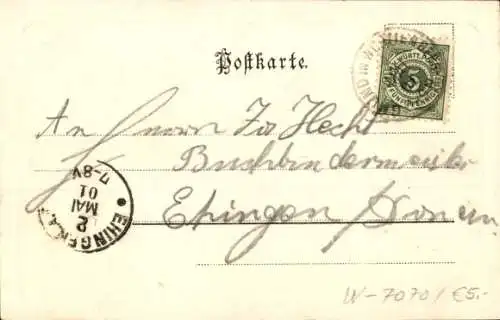 Postkarte.
K. WÜRTT. POST
5
FÜNF PFENNIG
An Herrn Jos Hecht
Buchbindermeister
Ehingen a/Donau
EHINGEN A.
2
MAI
01
7-8V
W-7070/€5.-